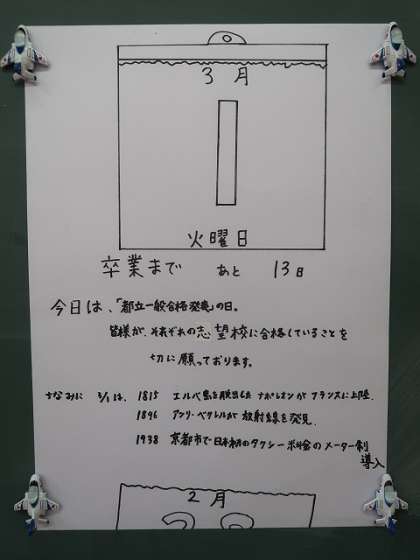 3月
1
火曜日
卒業まで あと 13日
今日は、「都立一般合格発表」の日。
皆様が、それぞれの志望校に合格していることを
切に願っております。
ちなみに 3/1は、1815 エルバ島を脱出した ナポレオンが フランスに上陸.
1896 アンリ・ベクレルが 放射線を発見.
1938 京都市で日本初のタクシー料金のメーター制
導入
2月